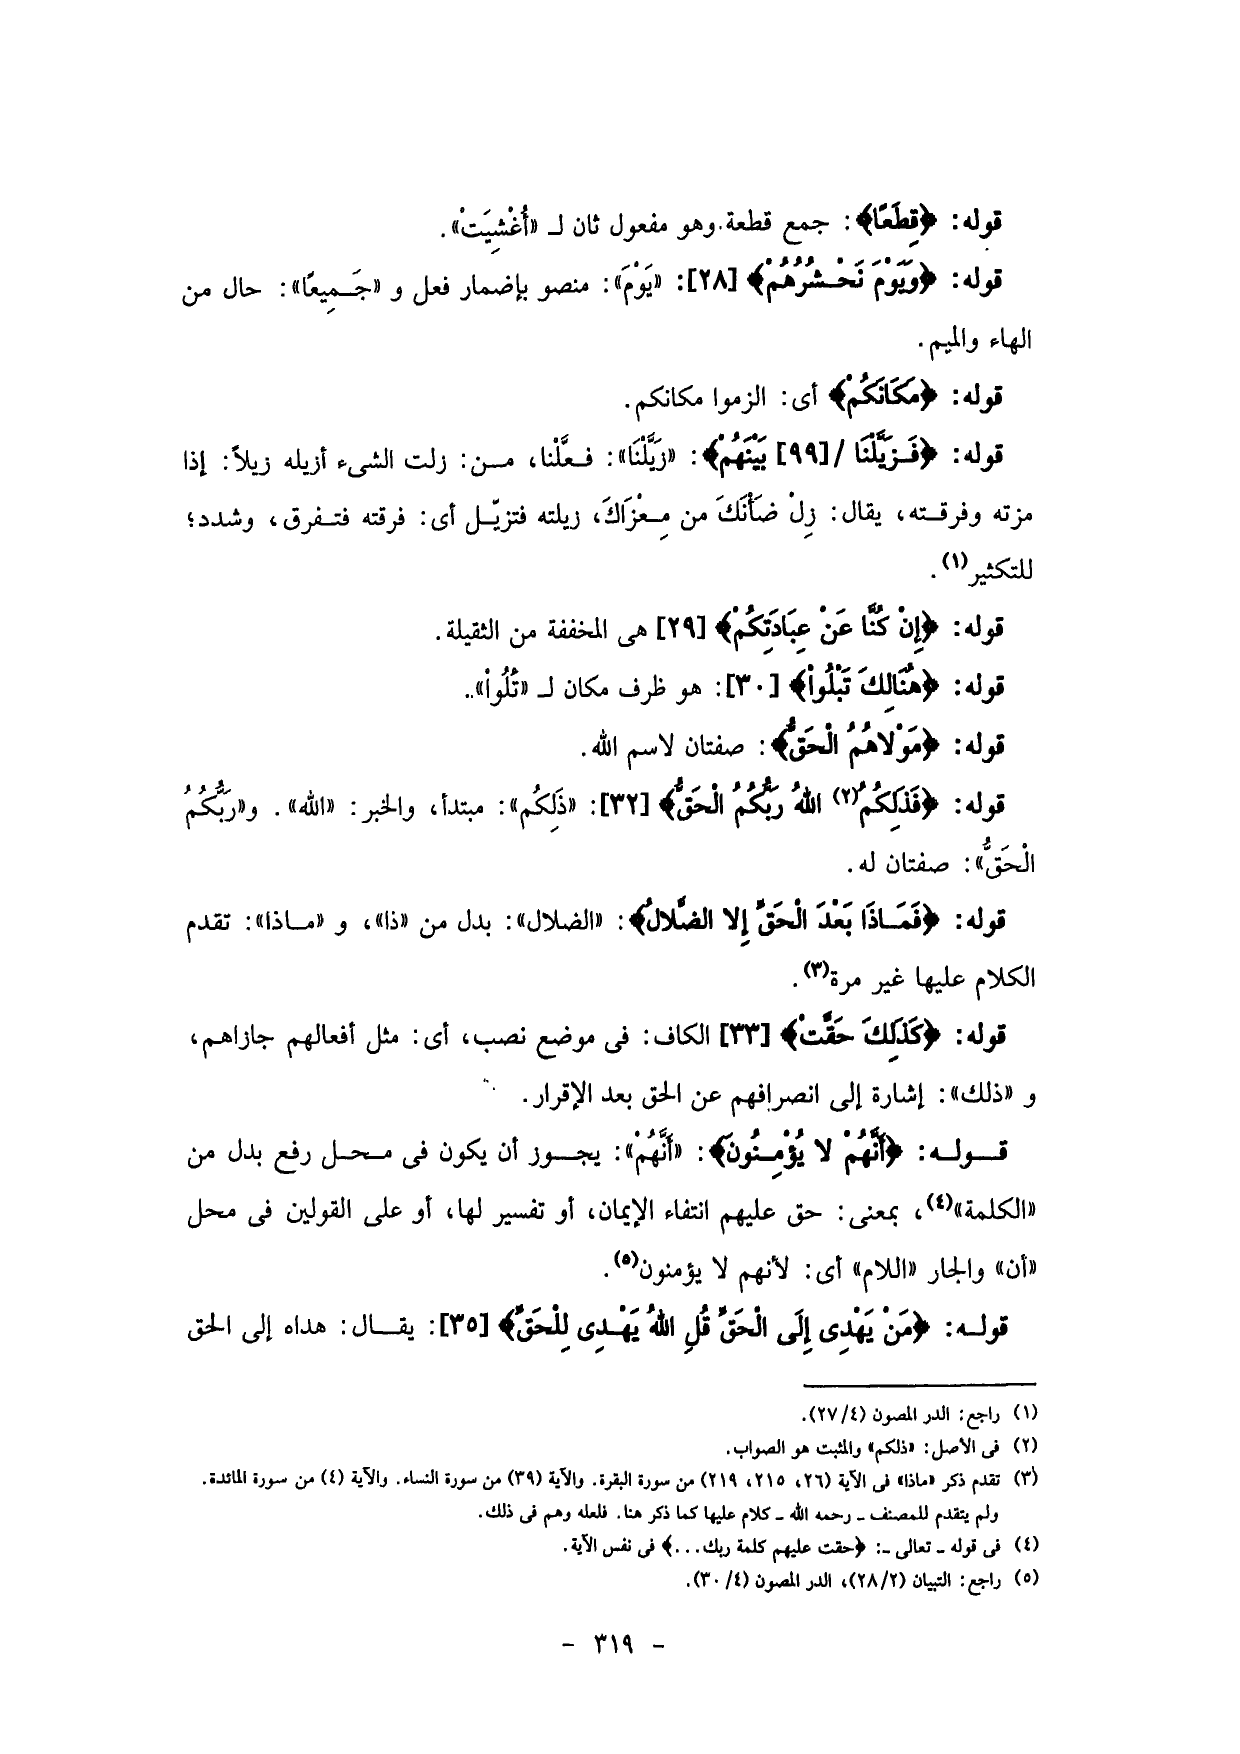 قوله: ﴿قِطَعًا﴾: جمع قطعة. وهو مفعول ثان لـ «أُغْشِيَتْ».
قوله: ﴿وَيَوْمَ نَحْشُرُهُمْ﴾ [٢٨]: «يَوْمَ»: منصو بإضمار فعل و «جَمِيعًا»: حال من
الهاء والميم.
قوله: ﴿مَكَانَكُمْ﴾ أى: الزموا مكانكم.
قوله: ﴿فَزَيَّلْنَا /[٩٩] بَيْنَهُمْ﴾: «زَيَّلْنَا»: فعَّلْنا، من: زلت الشىء أزيله زيلاً: إذا
مزته وفرقته، يقال: زِلْ ضَأْنَكَ من مِعْزَاكَ، زيلته فتزيّل أى: فرقته فتفرق، وشدد؛
للتكثير(١).
قوله: ﴿إِنْ كُنَّا عَنْ عِبَادَتِكُمْ﴾ [٢٩] هى المخففة من الثقيلة.
قوله: ﴿هُنَالِكَ تَبْلُواْ﴾ [٣٠]: هو ظرف مكان لـ «تُلُواْ»..
قوله: ﴿مَوْلاهُمُ الْحَقُّ﴾: صفتان لاسم الله.
قوله: ﴿فَذَلِكُمُ(٢) اللهُ رَبُّكُمُ الْحَقُّ﴾ [٣٢]: «ذَلِكُم»: مبتدأ، والخبر: «الله». و«رَبُّكُمُ
الْحَقُّ»: صفتان له.
قوله: ﴿فَمَاذَا بَعْدَ الْحَقِّ إِلا الضَّلالُ﴾: «الضلال»: بدل من «ذا»، و «ماذا»: تقدم
الكلام عليها غير مرة(٣).
قوله: ﴿كَذَلِكَ حَقَّتْ﴾ [٣٣] الكاف: فى موضع نصب، أى: مثل أفعالهم جازاهم،
و «ذلك»: إشارة إلى انصرافهم عن الحق بعد الإقرار.
قوله: ﴿أَنَّهُمْ لا يُؤْمِنُونَ﴾: «أَنَّهُمْ»: يجوز أن يكون فى محل رفع بدل من
«الكلمة»(٤)، بمعنى: حق عليهم انتفاء الإيمان، أو تفسير لها، أو على القولين فى محل
«أن» والجار «اللام» أى: لأنهم لا يؤمنون(٥).
قوله: ﴿مَنْ يَهْدِى إِلَى الْحَقِّ قُلِ اللهُ يَهْدِى لِلْحَقِّ﴾ [٣٥]: يقال: هداه إلى الحق
(١) راجع: الدر المصون (٢٧/٤).
(٢) فى الأصل: «ذلكم» والمثبت هو الصواب.
(٣) تقدم ذكر «ماذا» فى الآية (٢٦، ٢١٥، ٢١٩) من سورة البقرة. والآية (٣٩) من سورة النساء. والآية (٤) من سورة المائدة.
ولم يتقدم للمصنف ـ رحمه الله ـ كلام عليها كما ذكر هنا. فلعله وهم فى ذلك.
(٤) فى قوله ـ تعالى ـ: ﴿حقت عليهم كلمة ربك...﴾ فى نفس الآية.
(٥) راجع: التبيان (٢٨/٢)، الدر المصون (٣٠/٤).
- ٣١٩ -